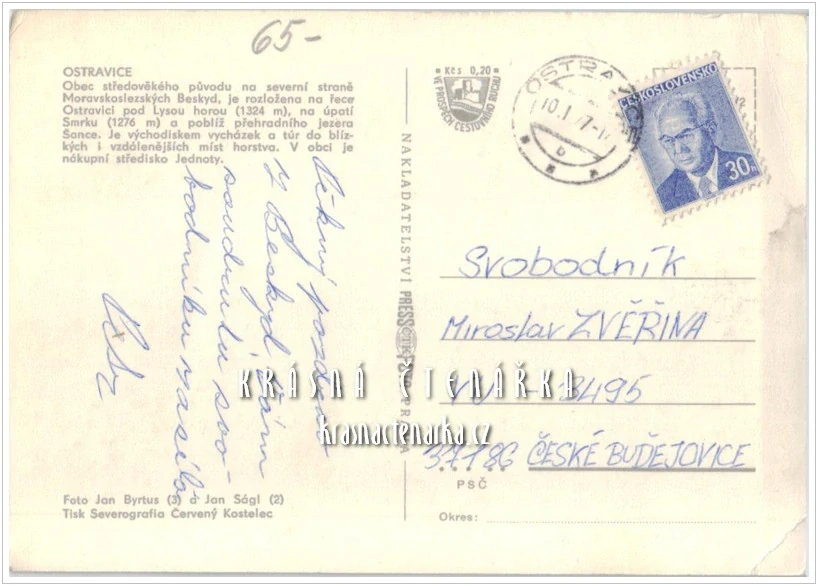 65-
OSTRAVICE
Obec středověkého původu na severní straně
Moravskoslezských Beskyd, je rozložena na řece
Ostravici pod Lysou horou (1324 m), na úpatí
Smrku (1276 m) a poblíž přehradního jezera
Šance. Je východiskem vycházek a túr do blíz-
kých i vzdálenějších míst horstva. V obci je
nákupní středisko Jednoty.
z Beskyd
Foto Jan Byrtus (3) a Jan Ságl (2)
Tisk Severografia Červený Kostelec
NAKLADATELSTVÍ PRESSFOTO PRAHA
Kčs 0,20
VE PROSPĚCH CESTOVNÍHO RUCHU
OSTRAVICE
ČESKOSLOVENSKO
30h
Svobodník
Miroslav ZVĚŘINA
3495
371 86 ČESKÉ BUĎEJOVICE
PSČ
Okres:
KRÁSNÁ ČTENÁŘKA
krasnactenarka.cz